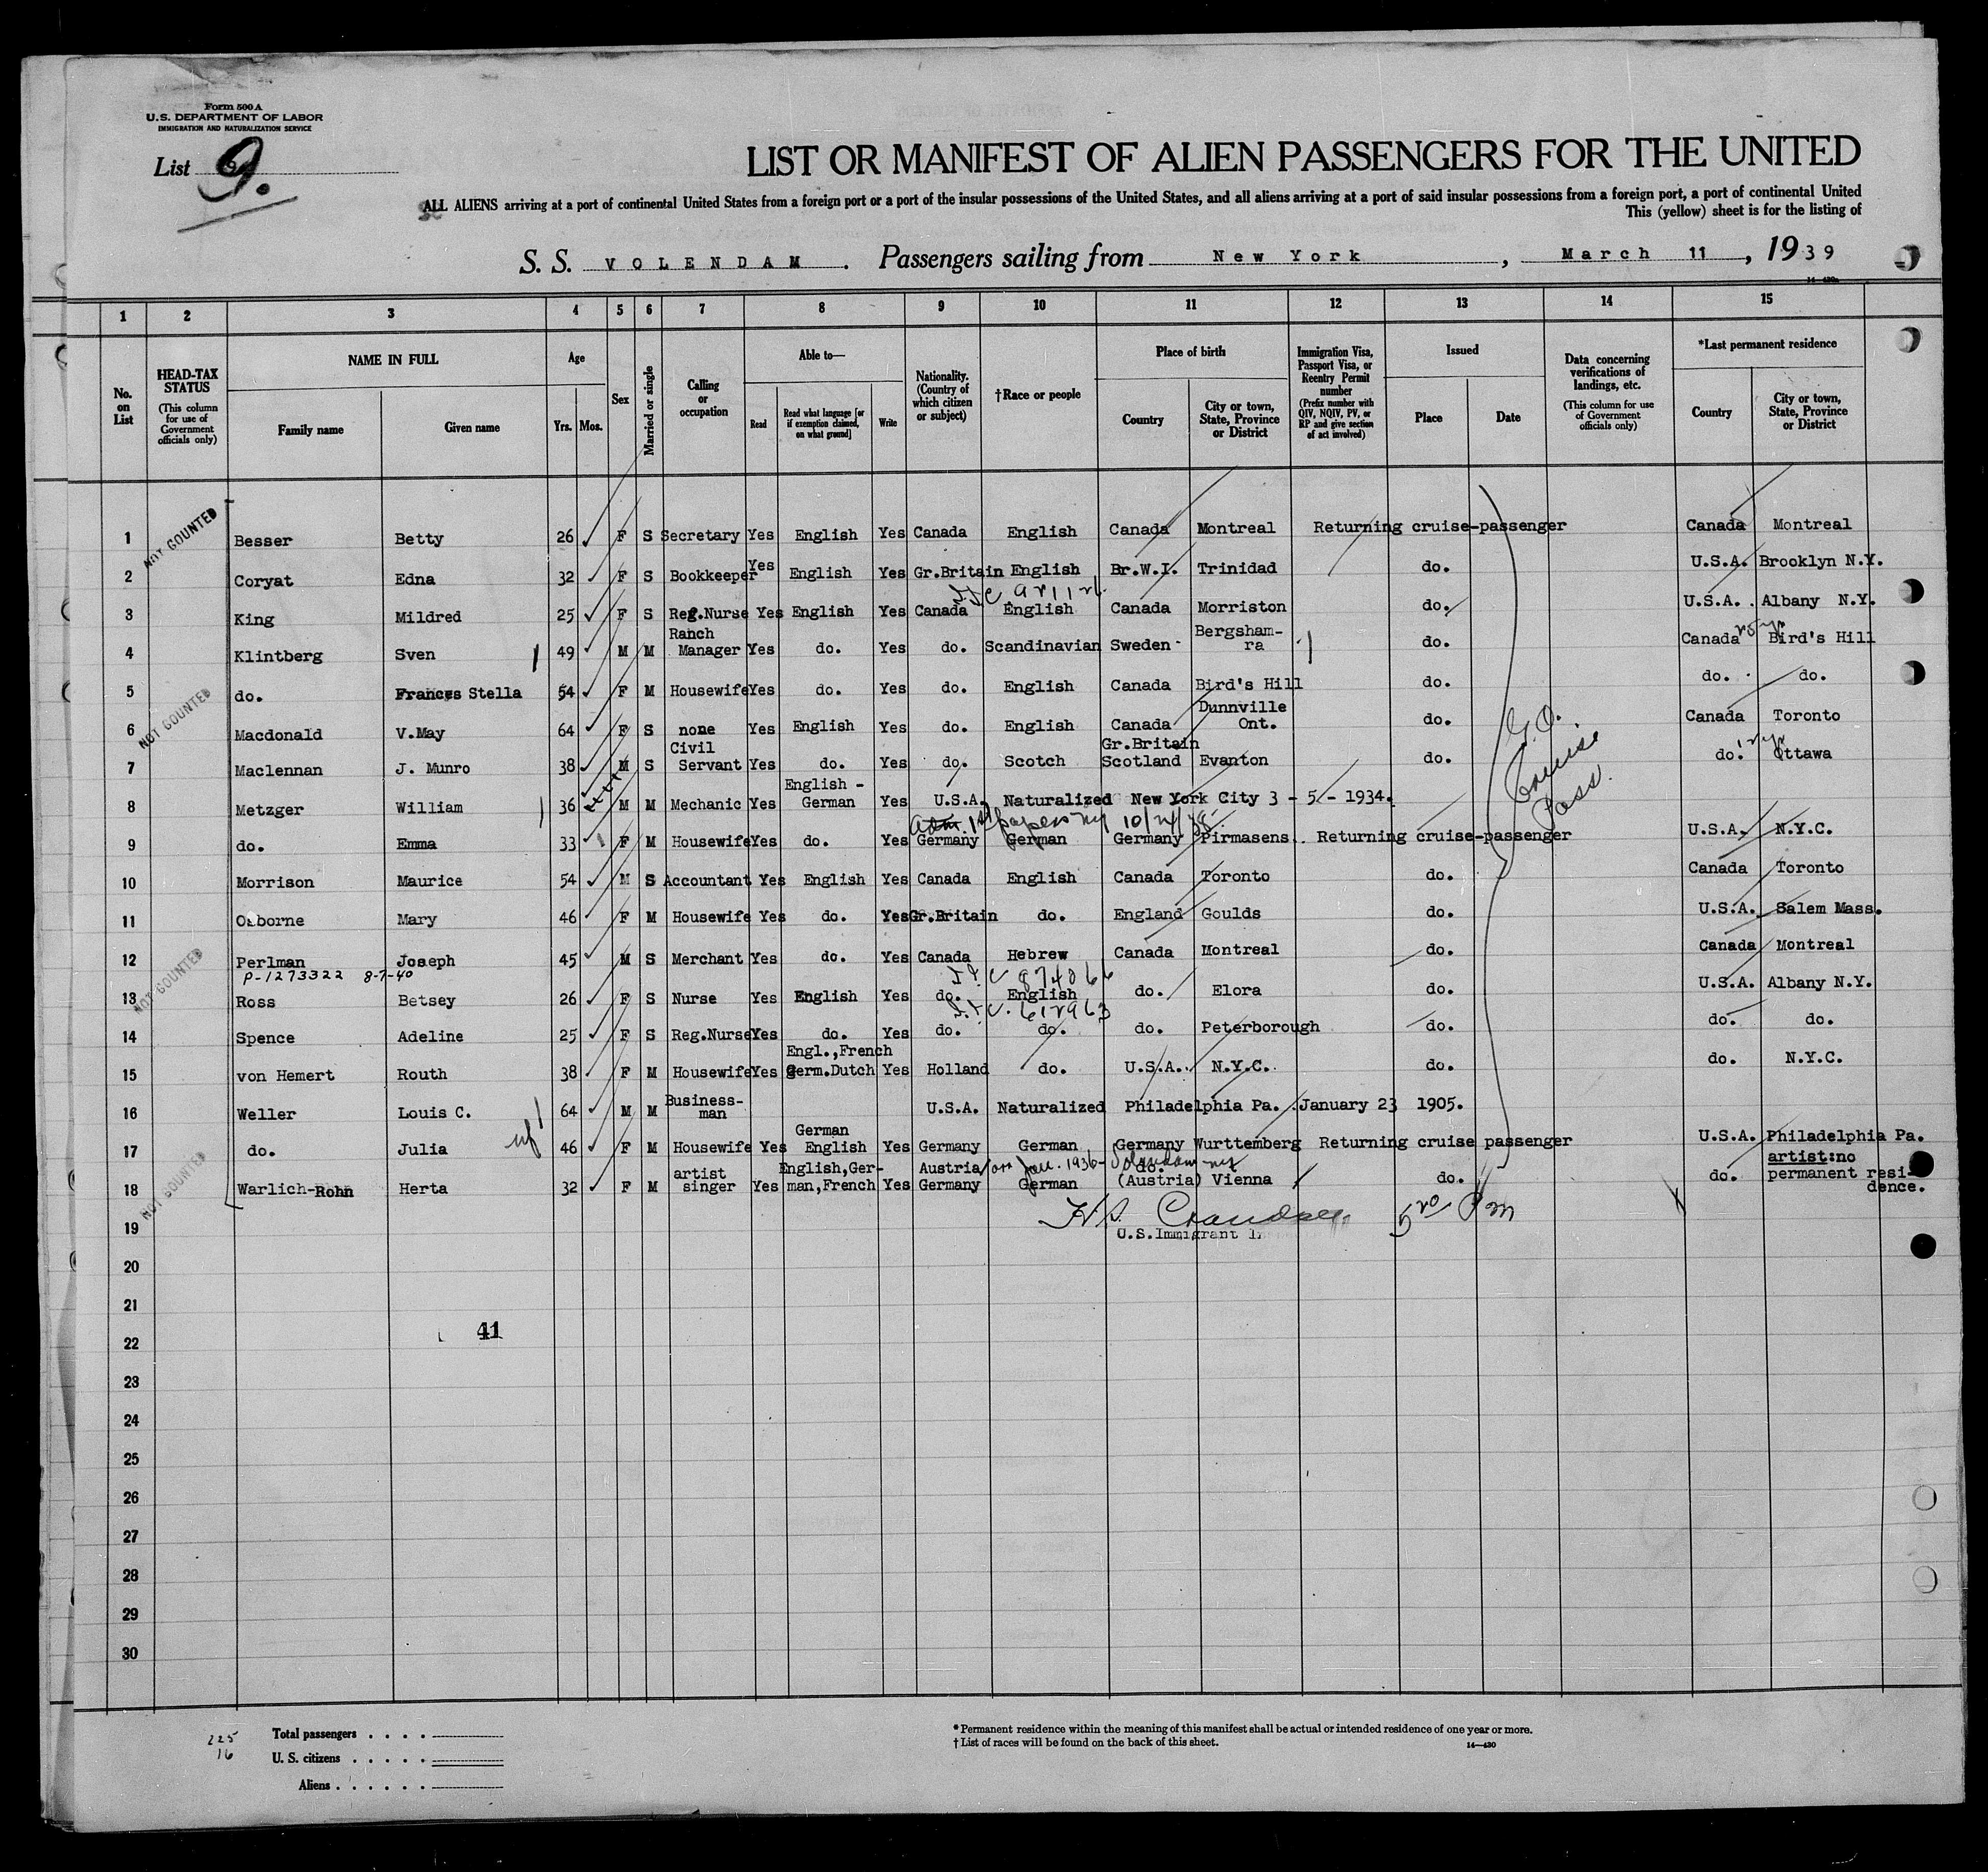 Form 500 A
U.S. DEPARTMENT OF LABOR
IMMIGRATION AND NATURALIZATION SERVICE
List 9.
LIST OR MANIFEST OF ALIEN PASSENGERS FOR THE UNITED
ALL ALIENS arriving at a port of continental United States from a foreign port or a port of the insular possessions of the United States, and all aliens arriving at a port of said insular possessions from a foreign port, a port of continental United
This (yellow) sheet is for the listing of
S. S. VOLENDAM. Passengers sailing from New York, March 11, 1939
14—430a
1 2 3 4 5 6 7 8 9 10 11 12 13 14 15
No. on List
HEAD-TAX STATUS (This column for use of Government officials only)
NAME IN FULL Family name Given name
Age Yrs. Mos.
Sex
Married or single
Calling or occupation
Able to— Read Read what language [or if exemption claimed, on what ground] Write
Nationality. (Country of which citizen or subject)
†Race or people
Place of birth Country City or town, State, Province or District
Immigration Visa, Passport Visa, or Reentry Permit number (Prefix number with QIV, NQIV, PV, or RP and give section of act involved)
Issued Place Date
Data concerning verifications of landings, etc. (This column for use of Government officials only)
*Last permanent residence Country City or town, State, Province or District
NOT COUNTED
1 Besser Betty 26 F S Secretary Yes English Yes Canada English Canada Montreal Returning cruise-passenger Canada Montreal
2 Coryat Edna 32 F S Bookkeeper Yes English Yes Gr.Britain English Br.W.I. Trinidad do. U.S.A. Brooklyn N.Y.
3 King Mildred 25 F S Reg.Nurse Yes English Yes Canada English Canada Morriston do. U.S.A. Albany N.Y.
4 Klintberg Sven 49 M M Ranch Manager Yes do. Yes do. Scandinavian Sweden Bergsham-ra do. Canada Bird's Hill
5 do. Frances Stella 54 F M Housewife Yes do. Yes do. English Canada Bird's Hill do. do. do.
NOT COUNTED
6 Macdonald V.May 64 F S none Yes English Yes do. English Canada Dunnville Ont. do. Canada Toronto
7 Maclennan J. Munro 38 M S Civil Servant Yes do. Yes do. Scotch Gr.Britain Scotland Evanton do. do. Ottawa
G.O. Cruise Pass.
8 Metzger William 36 M M Mechanic Yes English - German Yes U.S.A. Naturalized New York City 3 - 5 - 1934.
1st papers ny 10/24/38
9 do. Emma 33 F M Housewife Yes do. Yes Germany German Germany Pirmasens. Returning cruise-passenger U.S.A. N.Y.C.
10 Morrison Maurice 54 M S Accountant Yes English Yes Canada English Canada Toronto do. Canada Toronto
11 Osborne Mary 46 F M Housewife Yes do. Yes Gr.Britain do. England Goulds do. U.S.A. Salem Mass.
12 Perlman Joseph 45 M S Merchant Yes do. Yes Canada Hebrew Canada Montreal do. Canada Montreal
P-1273322 8-7-40
874066
NOT COUNTED
13 Ross Betsey 26 F S Nurse Yes English Yes do. English do. Elora do. U.S.A. Albany N.Y.
612963
14 Spence Adeline 25 F S Reg.Nurse Yes do. Yes do. do. do. Peterborough do. do. do.
15 von Hemert Routh 38 F M Housewife Yes Engl.,French Germ.Dutch Yes Holland do. U.S.A. N.Y.C. do. do. N.Y.C.
16 Weller Louis C. 64 M M Business-man U.S.A. Naturalized Philadelphia Pa. January 23 1905.
17 do. Julia 46 F M Housewife Yes German English Yes Germany German Germany Wurttemberg Returning cruise passenger U.S.A. Philadelphia Pa.
Jan. 1936
NOT COUNTED
18 Warlich-Rohn Herta 32 F M artist singer Yes English,Ger-man,French Yes Austria Germany German do. (Austria) Vienna do. do. artist:no permanent resi-dence.
5 PM
19 U.S.Immigrant
20
21
22 41
23
24
25
26
27
28
29
30
225
16
Total passengers
U. S. citizens
Aliens
* Permanent residence within the meaning of this manifest shall be actual or intended residence of one year or more.
† List of races will be found on the back of this sheet.
14—430